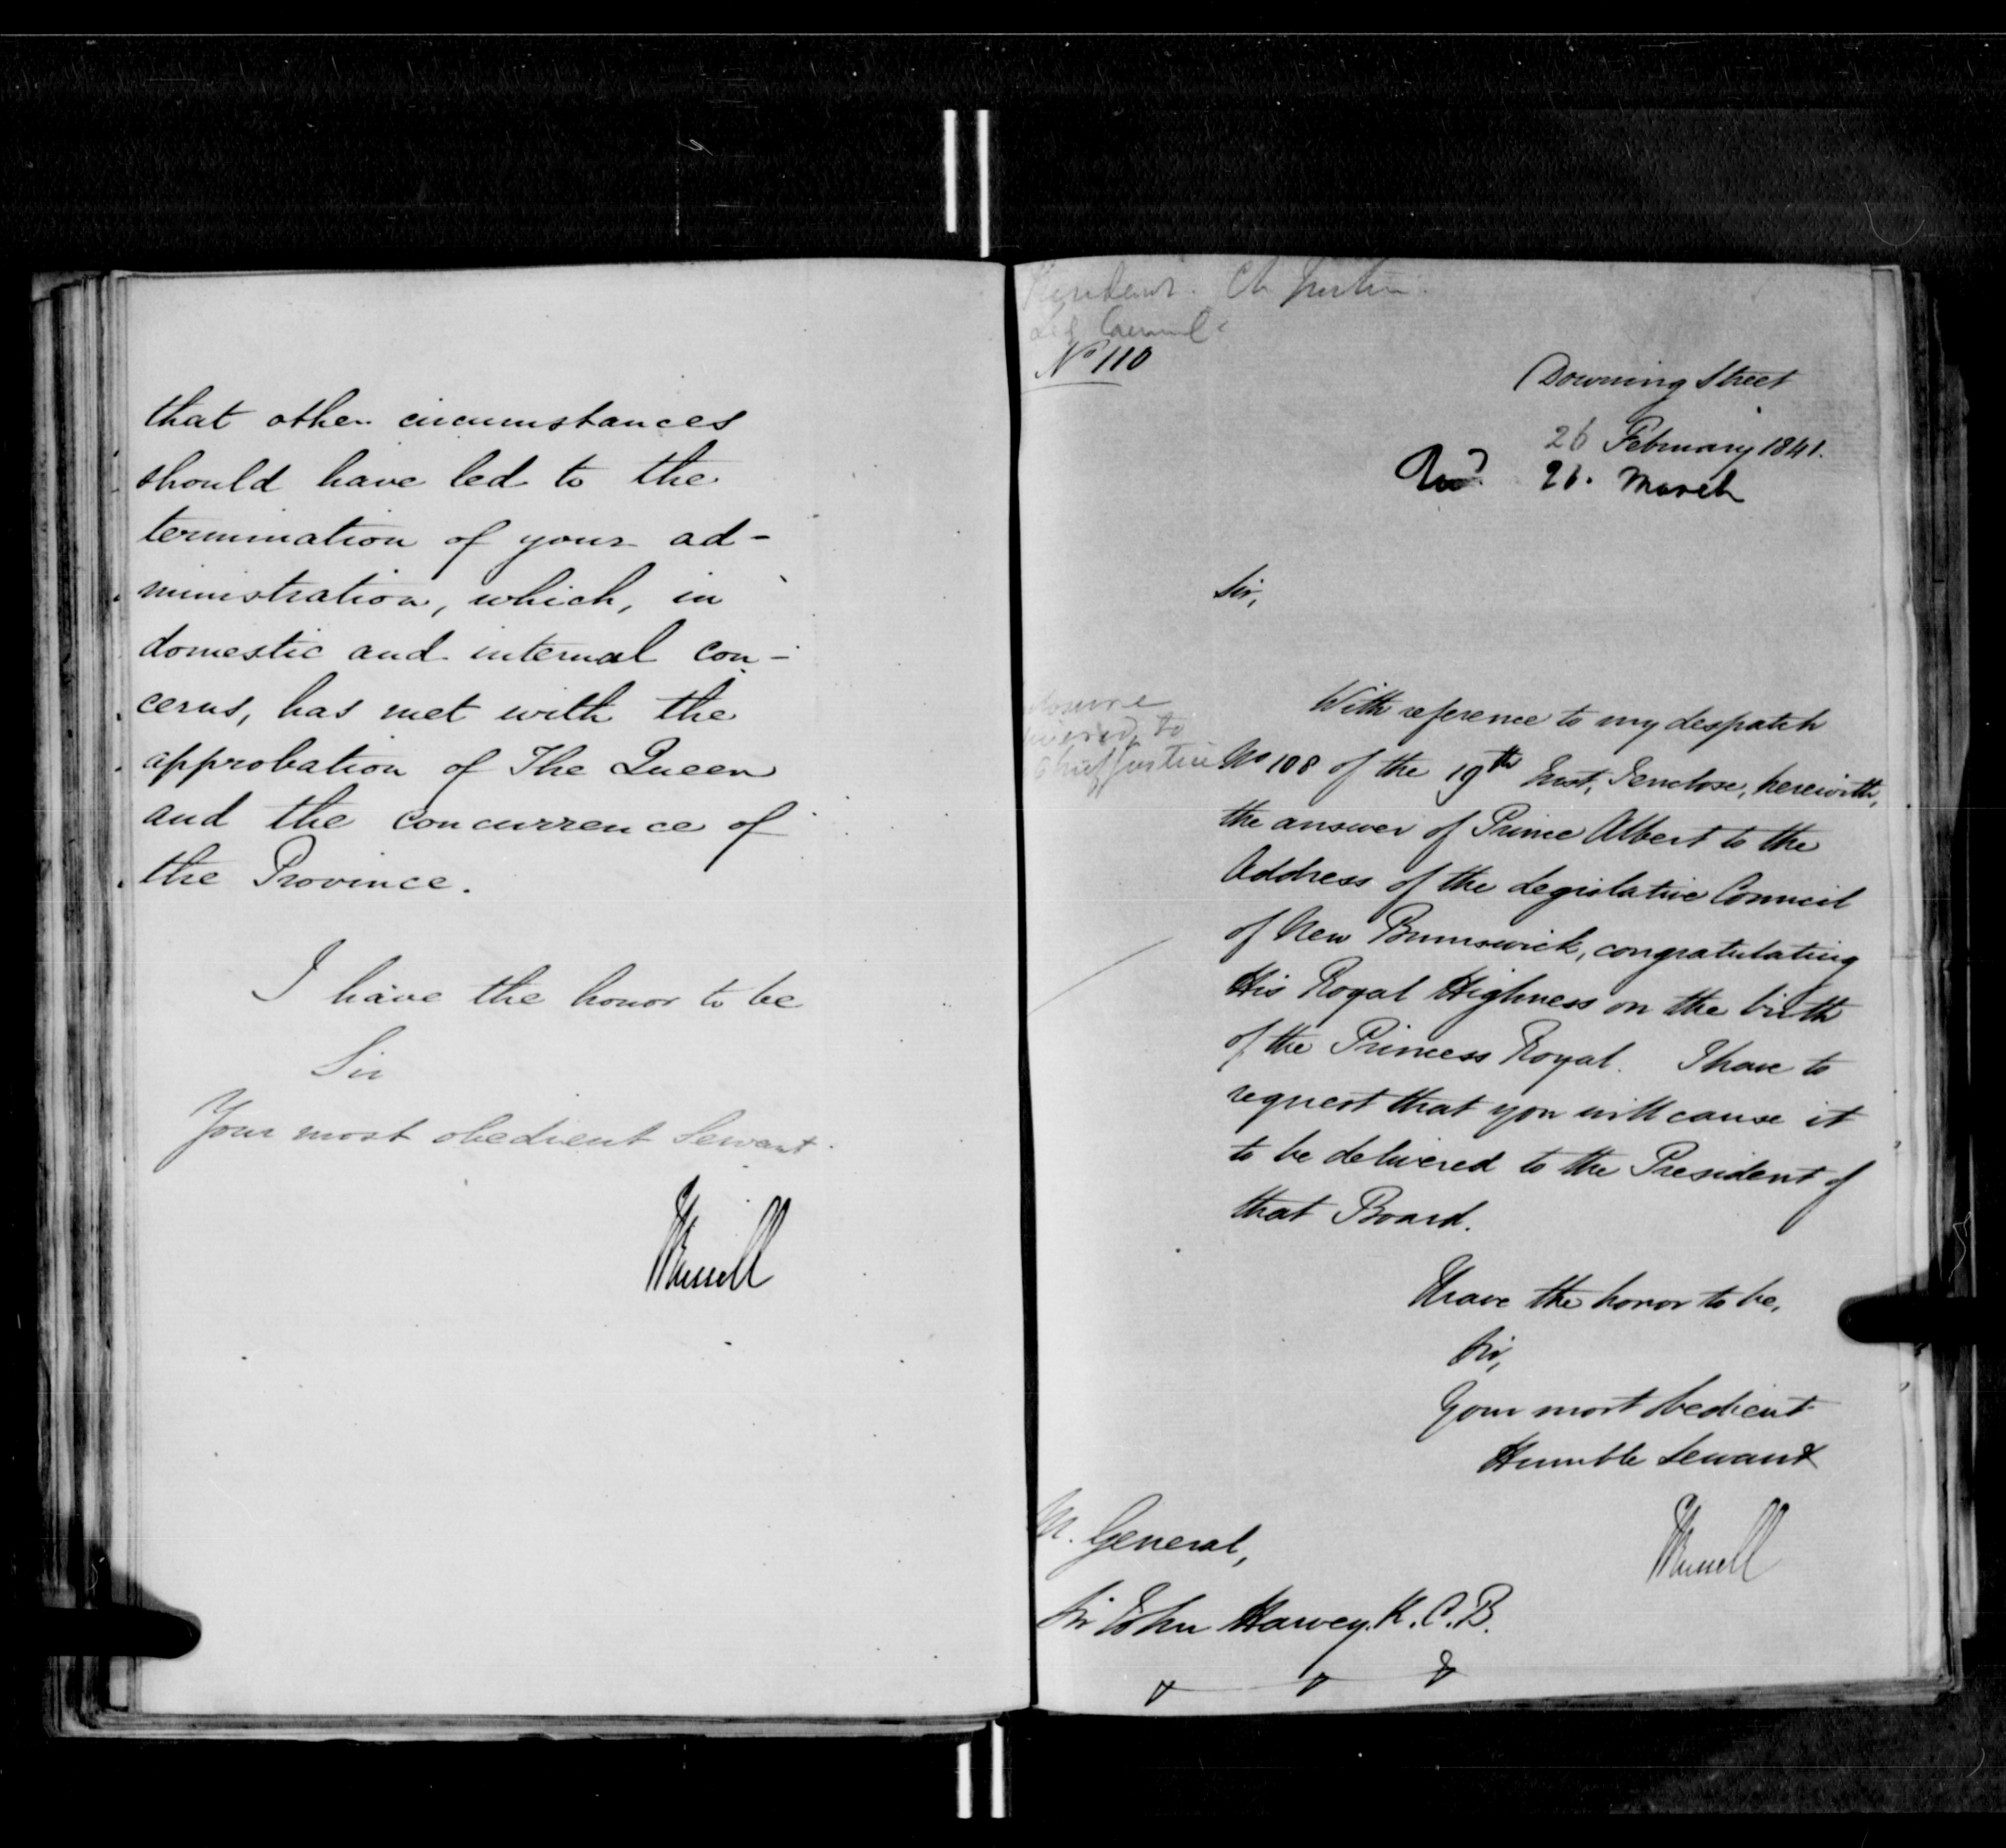 that other circumstances
should have led to the
termination of your ad-
ministration, which, in
domestic and internal con-
cerns, has met with the
approbation of The Queen
and the concurrence of
the Province.
I have the honor to be
Sir
Your most obedient Servant
JRussell
Ch Justice
Leg Council
No 110
Downing Street
26 February 1841.
Recd 26. March
Sir,
With reference to my despatch
No 108 of the 19th Inst, I enclose, herewith,
the answer of Prince Albert to the
Address of the Legislative Council
of New Brunswick, congratulating
His Royal Highness on the birth
of the Princess Royal. I have to
request that you will cause it
to be delivered to the President of
that Board.
to
Chief Justice
I have the honor to be,
Sir,
Your most obedient
Humble Servant
JRussell
M. General,
Sir John Harvey, K.C.B.